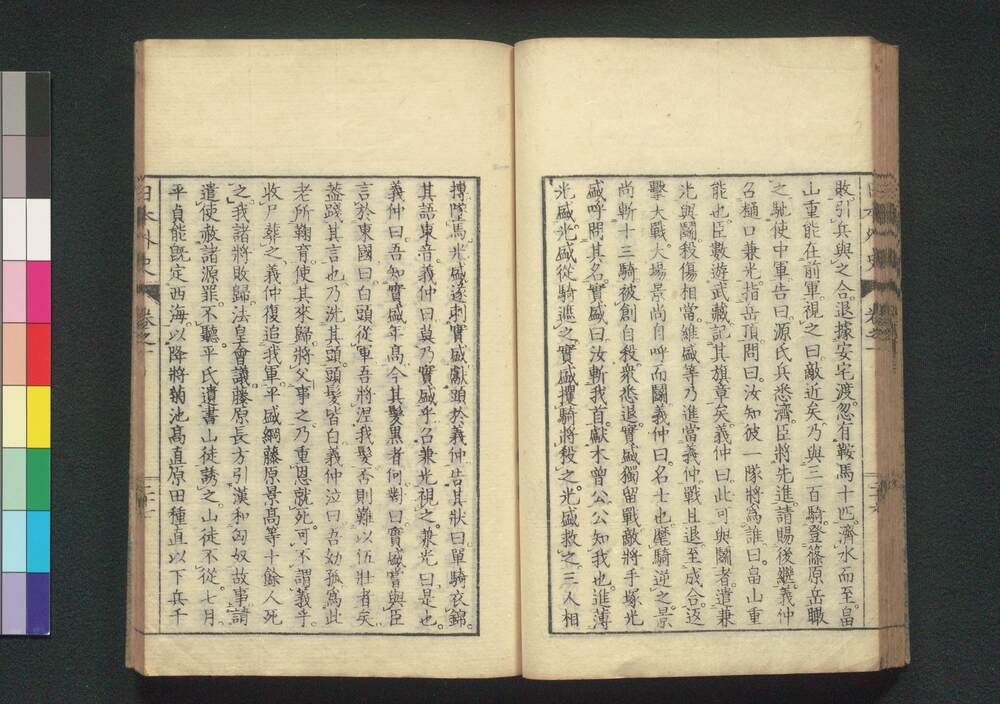 敗引兵與之合退據安宅渡忽有鞍馬十匹濟水而至畠
山重能在前軍視之曰敵近矣乃與三百騎登篠原岳瞰
之馳使中軍告曰源氏兵悉濟臣將先進請賜後繼義仲
召樋口兼光指岳頂問曰汝知彼一隊將為誰曰畠山重
能也臣數遊武藏記其旗章矣義仲曰此可與鬪者遣兼
光與鬪殺傷相當維盛等乃進當義仲戰且退至成合返
擊大戰大場景尚自呼而鬪義仲曰名士也麾騎逆之景
尚斬十三騎被創自殺衆悉退實盛獨留戰敵將手塚光
盛呼問其名實盛曰汝斬我首獻木曾公公知我也進薄
光盛光盛從騎遮之實盛攫騎將殺之光盛救之三人相
搏墮馬光盛遂刺實盛獻頭於義仲告其狀曰單騎衣錦
其語東音義仲曰莫乃實盛乎召兼光視之兼光曰是也
義仲曰吾知實盛年高今其髮黑者何對曰實盛嘗與臣
言於東國曰白頭從軍吾將涅我髮否則難以伍壯者矣
葢踐其言也乃洗其頭頭髮皆白義仲泣曰吾幼孤為此
老所鞠育使其來歸將父事之乃重恩就死可不謂義乎
收尸葬之義仲復追我軍平盛綱藤原景高等十餘人死
之我諸將敗歸法皇會議藤原長方引漢和匈奴故事請
遣使赦諸源罪不聽平氏遺書山徒誘之山徒不從七月
平貞能既定西海以降將菊池高直原田種直以下兵千
日本外史 卷之二